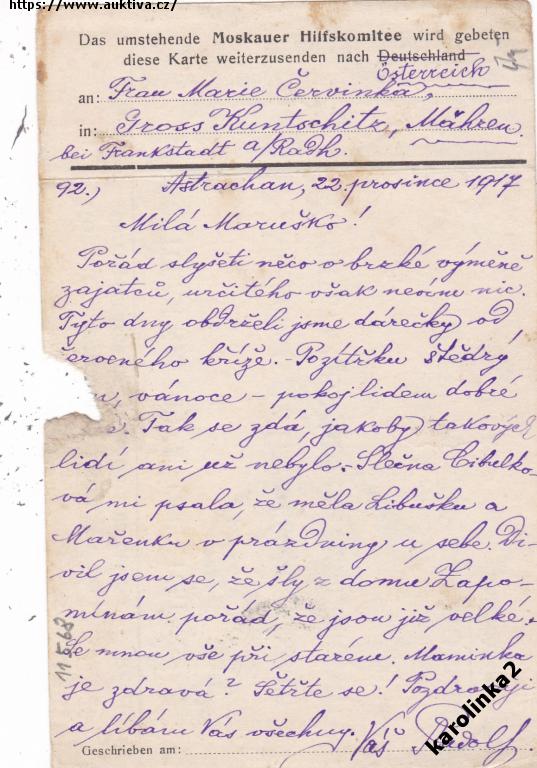 https://www.auktiva.cz/
Das umstehende Moskauer Hilfskomitee wird gebeten
diese Karte weiterzusenden nach Deutschland
Österreich
an: Frau Marie Červinka,
in: Gross Kuntschitz, Mähren.
bei Frankstadt a/Radh.
92.) Astrachan, 22. prosince 1917
Milá Maruško!
Pořád slyšeti něco o brzké výměně
zajatců, určitého však nevím nic.
Tyto dny obdrželi jsme dárečky od
červeného kříže. - Pozítřku štědrý
, vánoce - pokoj lidem dobré
. Tak se zdá, jakoby takových
lidí ani už nebylo. - Slečna Cibulko-
vá mi psala, že měla Libušku a
Mařenku v prázdniny u sebe. Di-
vil jsem se, že šly z domu Zapo-
mínám pořád, že jsou již velké. -
Se mnou vše při starém. Maminka
je zdravá? Šetřte se! Pozdravuji
a líbám Vás všechny. Váš Rudolf.
Geschrieben am:
11568
karolinka2